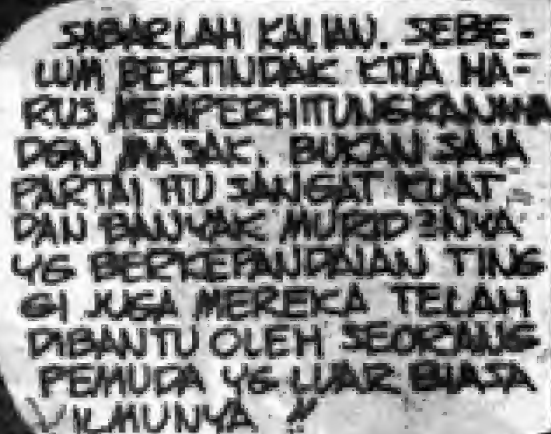 SABARLAH KALIAN. SEBE-
LUM BERTINDAK KITA HA-
RUS MEMPERHITUNGKANNYA
DGN MASAK. BUKAN SAJA
PARTAI ITU SANGAT KUAT
DAN BANYAK MURID2NYA
YG BERKEPANDAIAN TING
GI JUGA MEREKA TELAH
DIBANTU OLEH SEORANG
PEMUDA YG LUAR BIASA
ILMUNYA !!